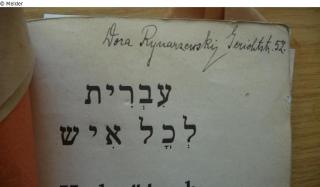 © Melder
Dora Rynarzewski Gerichtstr. 52.
עִבְרִית
לְכָל אִישׁ